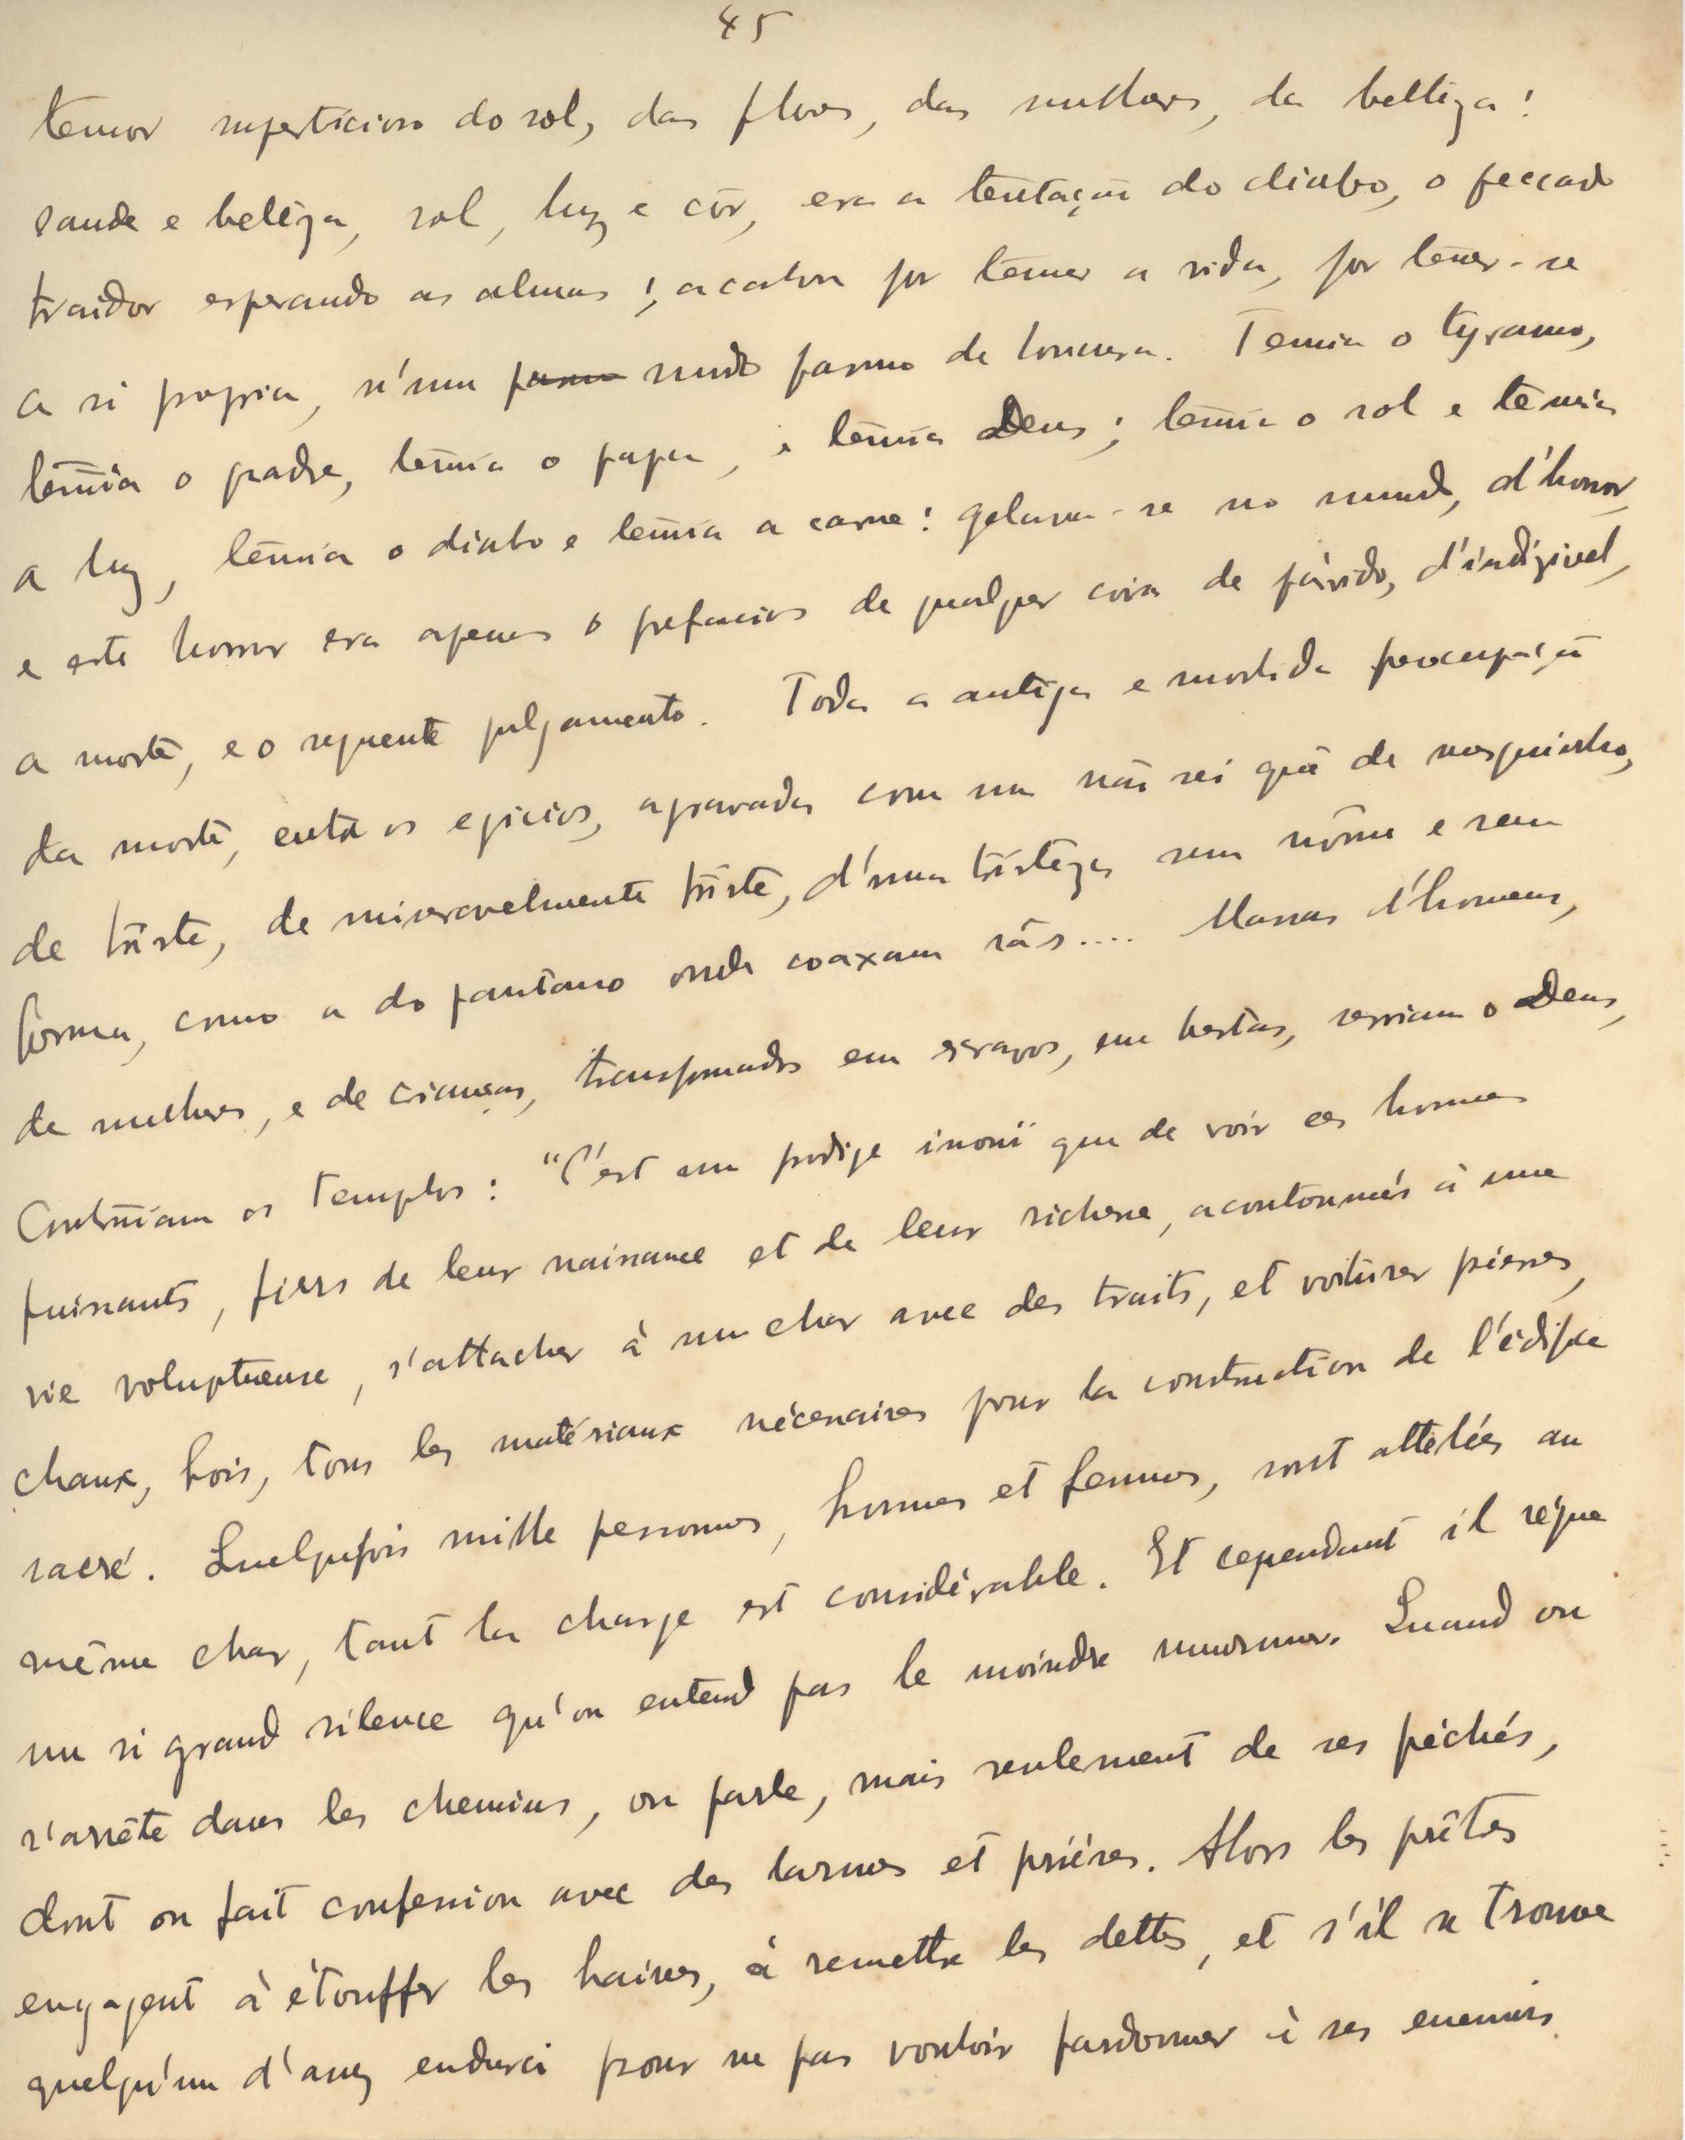 45
temor supersticioso do sol, das flores, das mulheres, da belleza!
saude e belêza, sol, luz e côr, era a tentação do diabo, o peccado
traidor esperando as almas!; acabou por temer a vida, por temer-se
a si propria, n'um pasmo mudo pasmo de loucura. Temia o tyranno,
temia o padre, temia o papa, e temia Deus; temia o sol e temia
a luz, temia o diabo e temia a carne! gelava-se no mundo, d'horror,
e este horror era apenas o prefacio de qualquer coisa de pávido, d'indizivel,
a morte, e o seguente julgamento. Toda a antiga e morbida preocupação
da morte, entre os egicios, agravada com um não sei quê de mesquinho,
de triste, de miseravelmente triste, d'uma tristeza sem nôme e sem
forma, como a do pantano onde coaxam rãs.... Massas d'homens,
de mulheres, e de crianças, transformados em escravos, em bestas, serviam o Deus,
Construiam os templos: "C'est un prodige inouï que de voir ces hommes
puissants, fiers de leur naissance et de leur richesse, acoutoumés à une
vie voluptueuse, s'attacher à un char avec des traits, et voiturer pierres,
chaux, bois, tous les matériaux nécessaires pour la construction de l'édifice
sacré. Quelquefois mille personnes, hommes et femmes, sont attelées au
même char, tant la charge est considérable. Et cependant il régne
un si grand silence qu'on entend pas le moindre murmure. Quand on
s'arrête dans les chemins, on parle, mais seulement de ses péchés,
dont on fait confession avec des larmes et priéres. Alors les prêtes
engagent à étouffer les haines, à remettre les dettes, et s'il se trouve
quelqu'un d'assez endurci pour ne pas vouloir pardonner à ses enemis